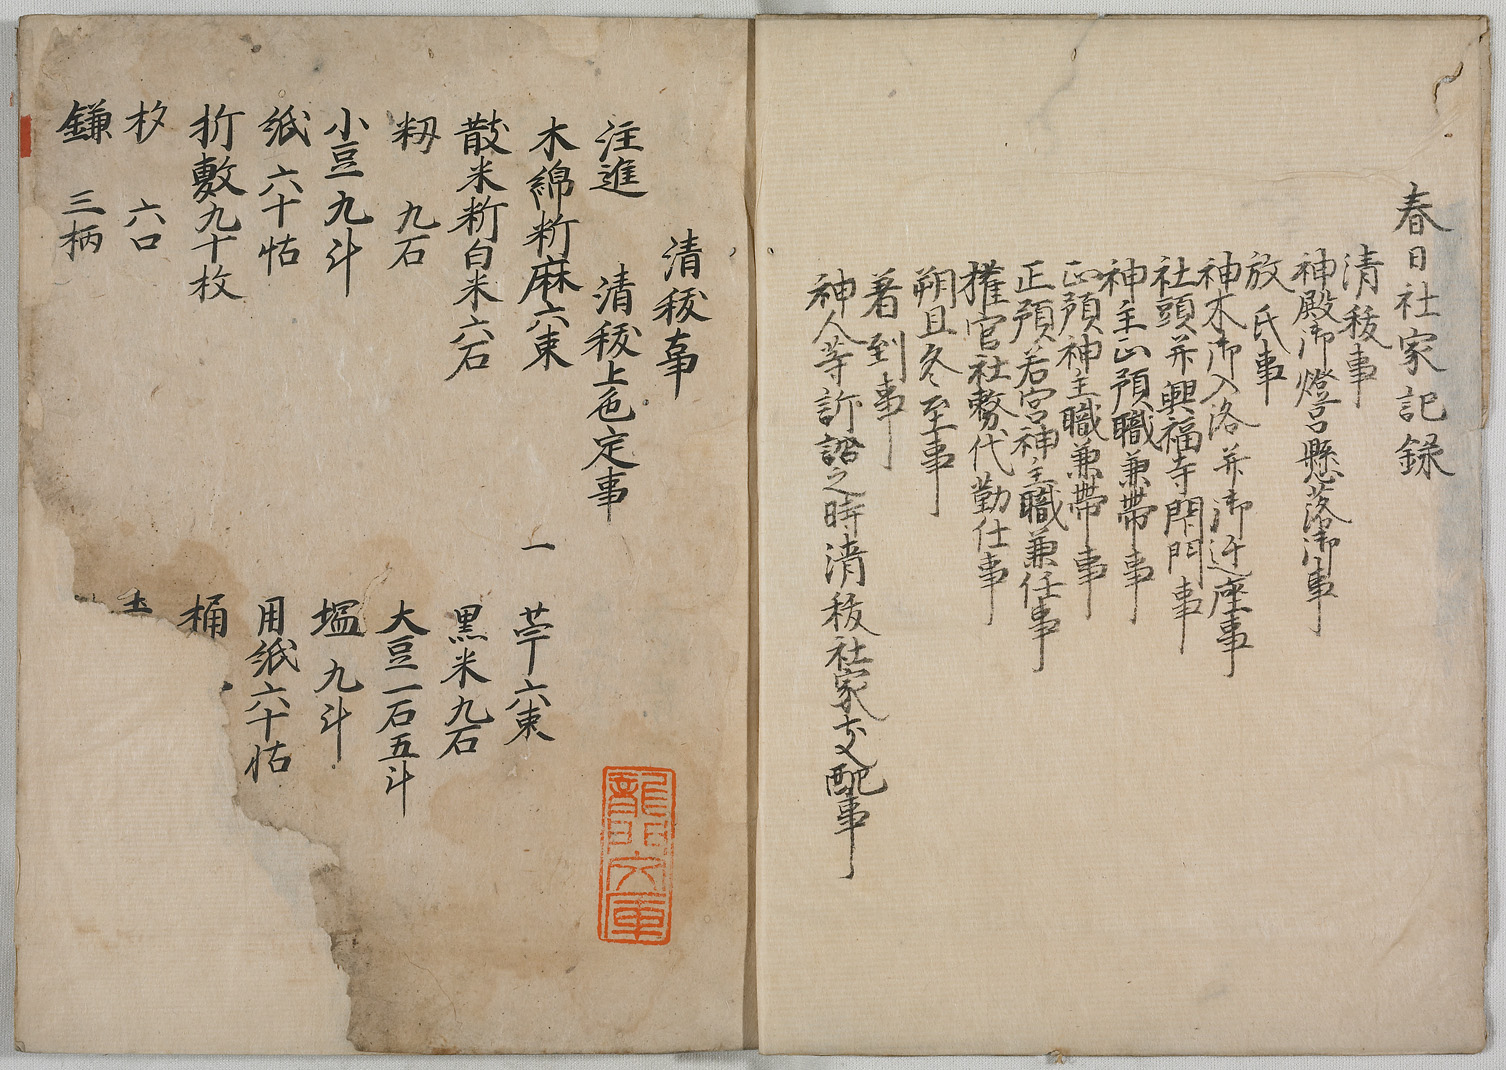 春日社家記録
清祓事
神殿御燈呂懸落御事
放氏事
神木御入洛并御迁座事
社頭并興福寺閇門事
神主正預職兼帶事
正預神主職兼帶事
正預若宮神主職兼任事
權官社務代勤仕事
朔旦冬至事
著到事
神人等訴詔之時清祓社家支配事
清祓事
注進 清祓上色定事
木綿䉼麻六束 一 苧六束
散米䉼白米六石 黒米九石
籾 九石 大豆一石五斗
小豆九斗 塩 九斗
紙六十帖 用紙六十帖
折敷九十枚 桶
杉 六口
鎌 三柄
龍門文庫